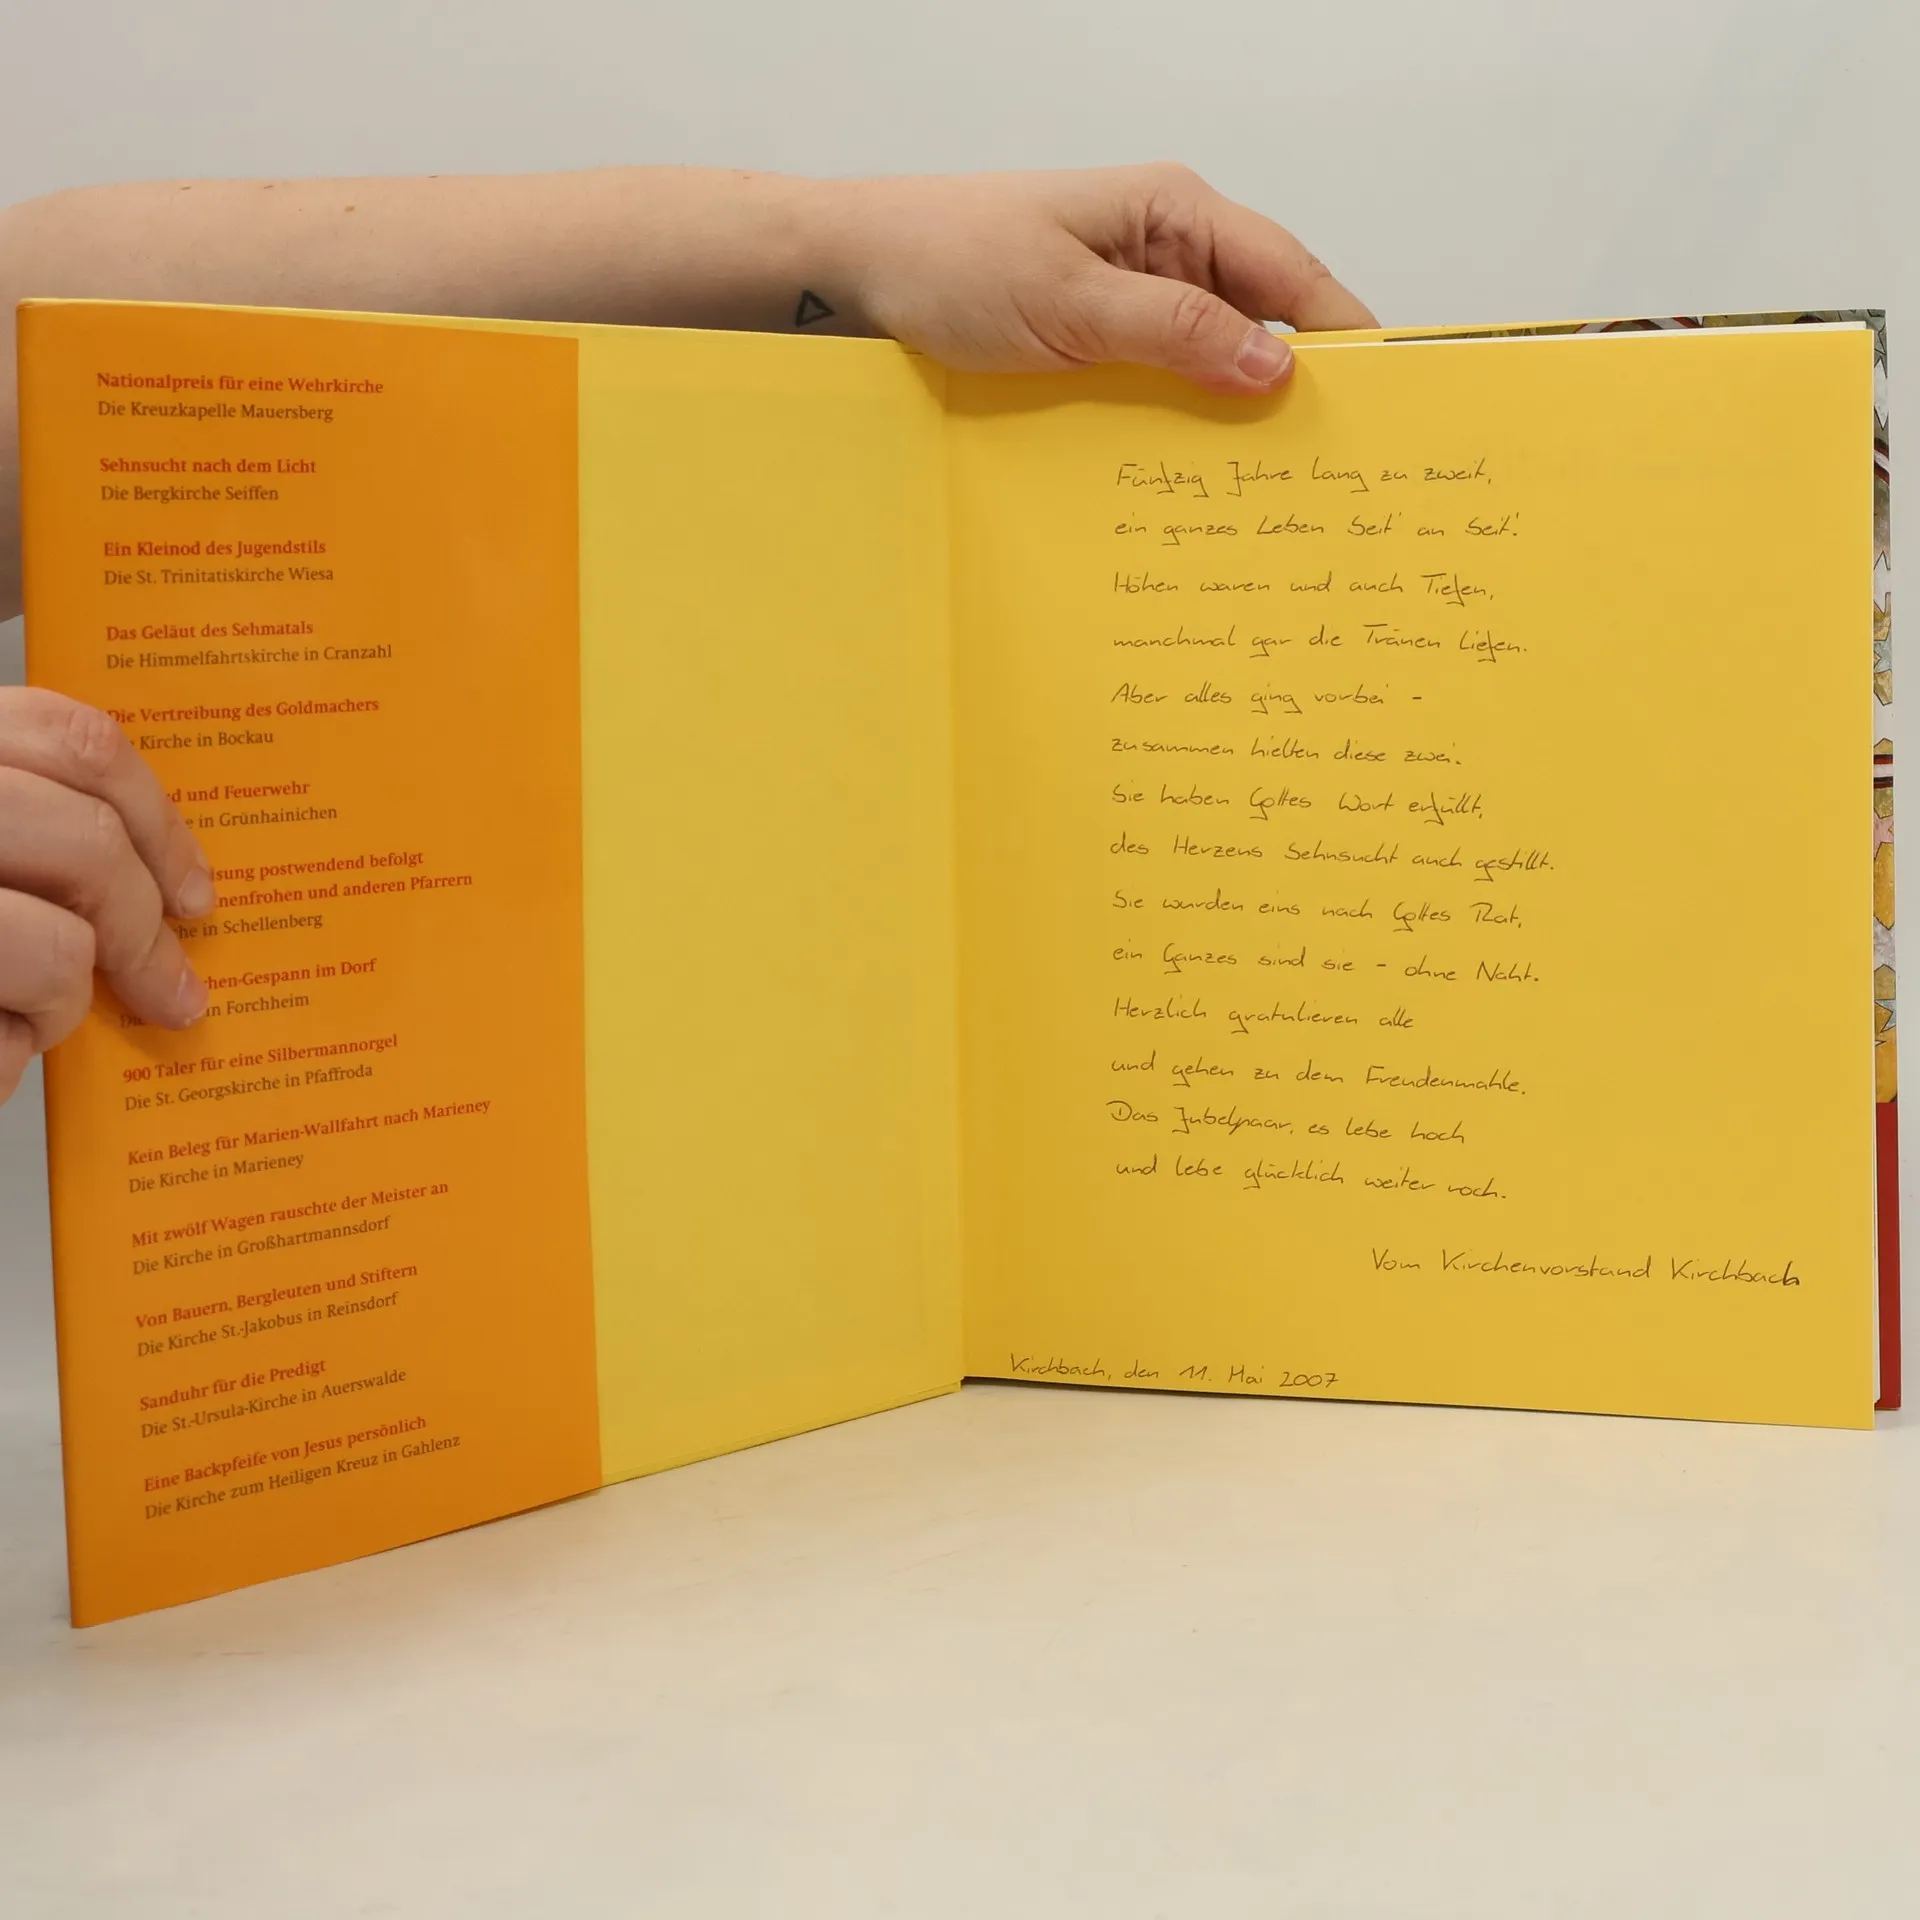 Nationalpreis für eine Wehrkirche
Die Kreuzkapelle Mauersberg
Sehnsucht nach dem Licht
Die Bergkirche Seiffen
Ein Kleinod des Jugendstils
Die St. Trinitatiskirche Wiesa
Das Geläut des Sehmatals
Die Himmelfahrtskirche in Cranzahl
Die Vertreibung des Goldmachers
Kirche in Bockau
und Feuerwehr
in Grünhainichen
postwendend befolgt
und anderen Pfarrern
in Schellenberg
im Dorf
in Forchheim
900 Taler für eine Silbermannorgel
Die St. Georgskirche in Pfaffroda
Kein Beleg für Marien-Wallfahrt nach Marieney
Die Kirche in Marieney
Mit zwölf Wagen rauschte der Meister an
Die Kirche in Großhartmannsdorf
Von Bauern, Bergleuten und Stiftern
Die Kirche St.-Jakobus in Reinsdorf
Sanduhr für die Predigt
Die St.-Ursula-Kirche in Auerswalde
Eine Backpfeife von Jesus persönlich
Die Kirche zum Heiligen Kreuz in Gahlenz
Fünfzig Jahre lang zu zweit,
ein ganzes Leben Seit' an Seit'.
Höhen waren und auch Tiefen,
manchmal gar die Tränen liefen.
Aber alles ging vorbei -
zusammen hielten diese zwei.
Sie haben Gottes Wort erfüllt,
des Herzens Sehnsucht auch gestillt.
Sie wurden eins nach Gottes Rat,
ein Ganzes sind sie - ohne Naht.
Herzlich gratulieren alle
und gehen zu dem Freudenmahle.
Das Jubelpaar, es lebe hoch
und lebe glücklich weiter noch.
Vom Kirchenvorstand Kirchbach
Kirchbach, den 11. Mai 2007